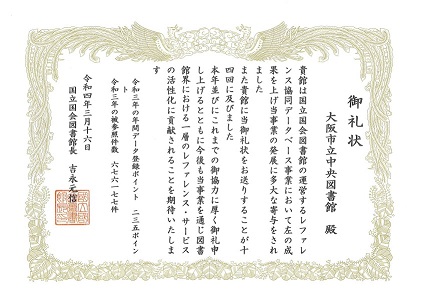 御礼状
大阪市立中央図書館 殿
貴館は国立国会図書館の運営するレファレ
ンス協同データベース事業において左の成
果を上げ当事業の発展に多大な寄与をされ
ました
また貴館に当御礼状をお送りすることが十
四回に及びました
本年並びにこれまでの御協力に厚く御礼申
し上げるとともに今後も当事業を通じ図書
館界における一層のレファレンス・サービス
の活性化に貢献されることを期待いたしま
す
令和三年の年間データ登録ポイント 二三五ポイン
ト
令和三年の被参照件数 六七六一七七件
令和四年三月十六日
国立国会図書館長 吉永元信